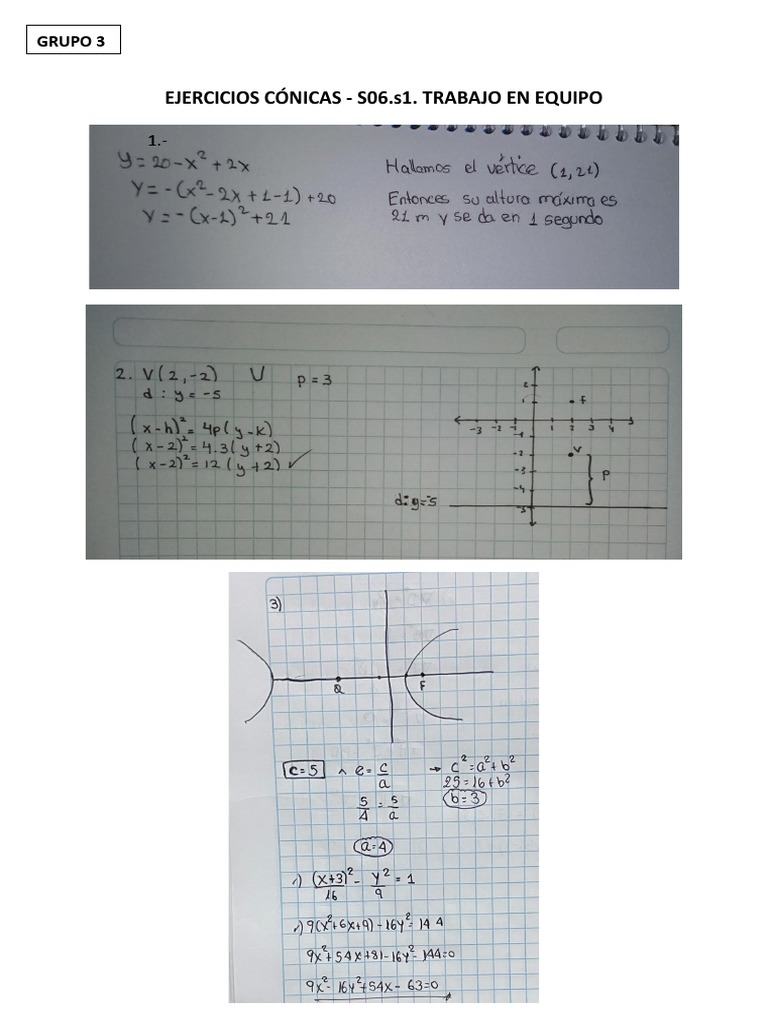 GRUPO 3
EJERCICIOS CÓNICAS - S06.s1. TRABAJO EN EQUIPO
1.-
y = 20 - x² + 2x
y = -(x² - 2x + 1 - 1) + 20
y = -(x-1)² + 21
Hallamos el vértice (1,21)
Entonces su altura máxima es
21 m y se da en 1 segundo
2. V(2,-2) U p = 3
d : y = -5
(x-h)² = 4p(y-k)
(x-2)² = 4.3(y+2)
(x-2)² = 12(y+2) ✓
2
1 F
-3 -2 -1 1 2 3 4
-1
-2 V
-3 P
-4
d: y=-5
-5
3)
Q F
c=5 ∧ e = c/a
5/4 = 5/a
a=4
→ c² = a² + b²
25 = 16 + b²
b=3
∴) (x+3)²/16 - y²/9 = 1
∴) 9(x²+6x+9) - 16y² = 144
9x² + 54x + 81 - 16y² - 144 = 0
9x² - 16y² + 54x - 63 = 0